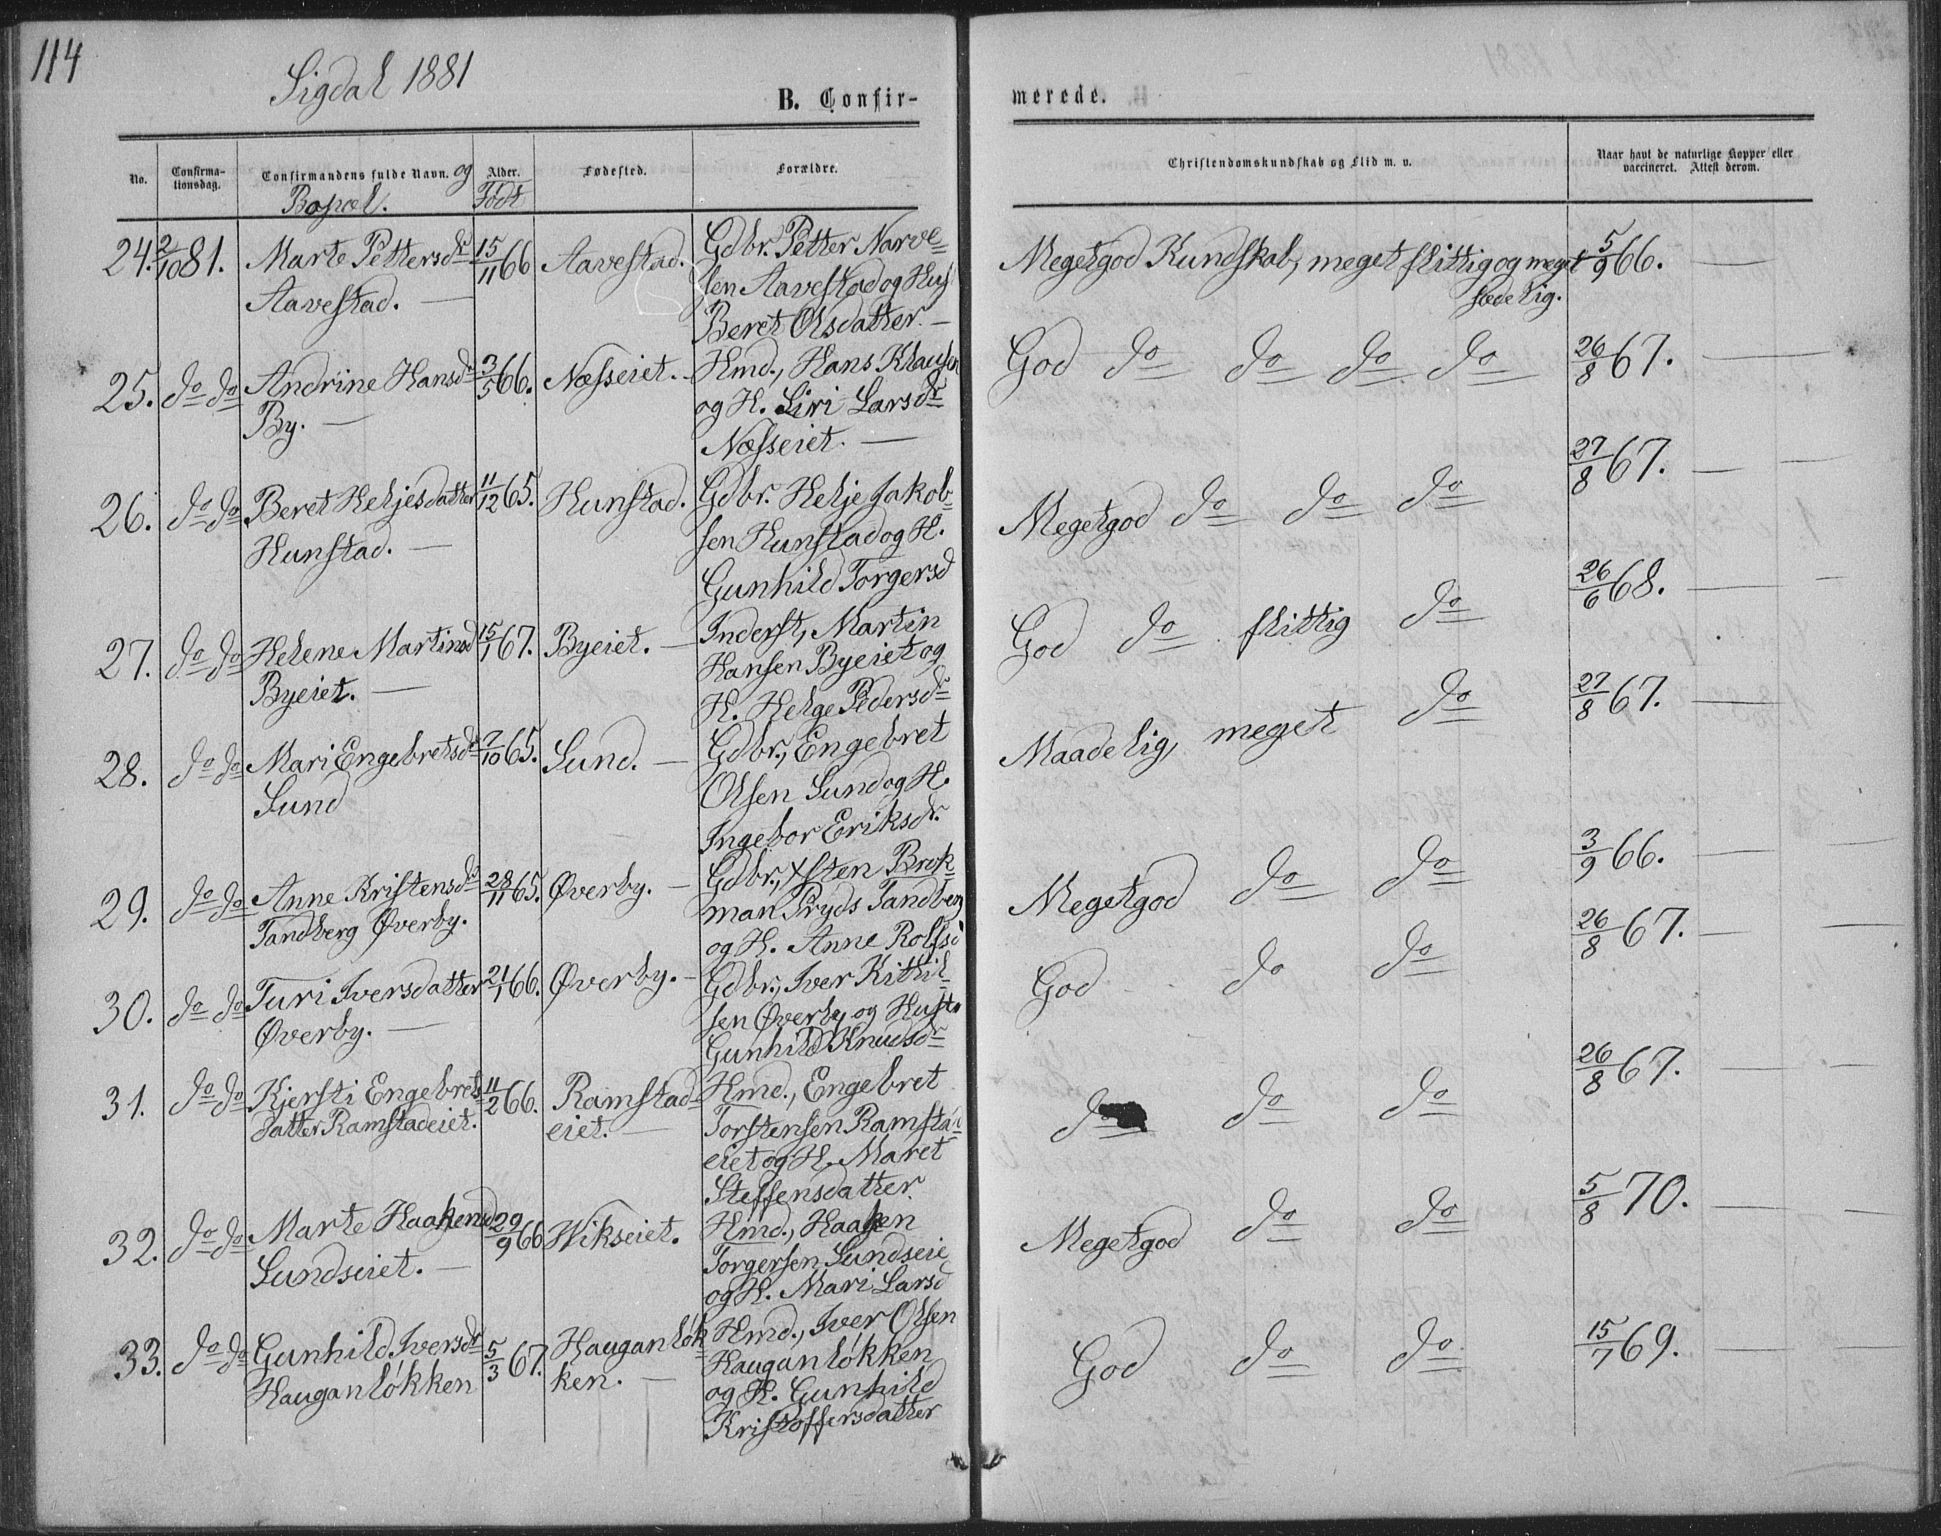 114
Sigdal 1881
B. Confir-
merede.
No.
Confirma-
tionsdag.
Confirmandens fulde Navn. og
Bopæl.
Alder.
Født
Fødested.
Forældre.
Christendomskundskab og Flid m. v.
Naar havt de naturlige Kopper eller
vaccineret. Attest derom.
24. 2/10 81. Marte Pettersdr 15/11 66 Aavestad. Gdbr. Petter Narve= Megetgod Kundskab, meget flittig og meget 5/9 66. —
Aavestad. — sen Aavestad og Hus sædelig.
Beret Olsdatter. —
25. do do Andrine Hansdr 3/5 66. Næsseiet. - Hmd., Hans Klausen God do do do do 26/8 67. —
By. — og H. Siri Larsdr
Næsseiet. —
26. do do Beret Heljesdatter 11/12 65. Hunstad. Gdbr. Helje Jakob- Megetgod do do do 27/8 67. —
Hunstad. — sen Hunstad og H.
Gunhild Torgersd
27. do do Helene Martinsd 15/1 67. Byeiet. — Inderst, Martin God do flittig do 26/6 68. —
Byeiet. — Hansen Byeiet og
H. Helge Pedersdr
28. do do Mari Engebretsdr 7/10 65. Sund. — Gdbr., Engebret Maadelig, meget do 27/8 67. —
Sund Olsen Sund og H.
Ingebor Eriksdr.
29. do do Anne Kristensdr 28/11 65. Øverby. — Gdbr., Xsten Brok- Megetgod do do 3/9 66. —
Tandberg Øverby. man Pryds Tandberg
og H. Anne Rolfsd
30. do do Turi Iversdatter 21/1 66. Øverby. - Gdbr., Iver Kithil- God do do 26/8 67. —
Øverby. — sen Øverby og Hustr
Gunhild Knudsdr
31. do do Kjersti Engebrets- 11/2 66. Ramstad- Hmd., Engebret do do do 26/8 67. —
datter Ramstadeiet. eiet. — Torstensen Ramstad
eiet og H. Maret
Steffensdatter
32. do do Marte Haakensd 29/9 66 Wikseiet. Hmd., Haaken Megetgod do do 5/8 70. —
Sundseiet. — Torgersen Sundseie
og H. Mari Larsd
33. do do Gunhild Iversdr 5/3 67. Hauganløk Hmd., Iver Olsen God do do 15/7 69. —
Hauganløkken ken. — Hauganløkken
og H. Gunhild
Kristoffersdatter